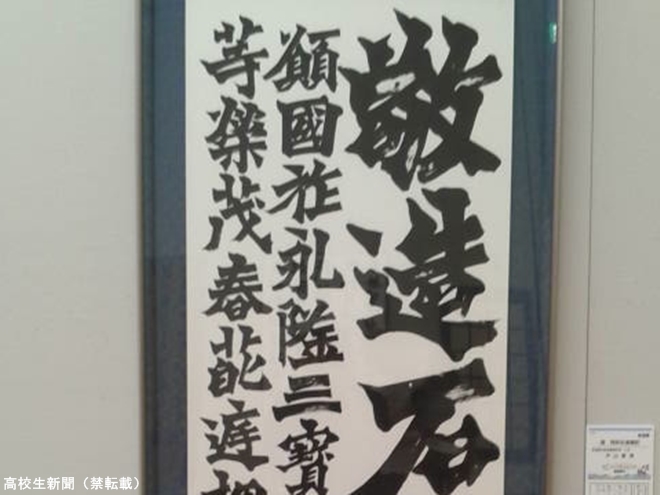 敬造石
願國祚永隆三寶
等榮茂春葩遅
高校生新聞（禁転載）